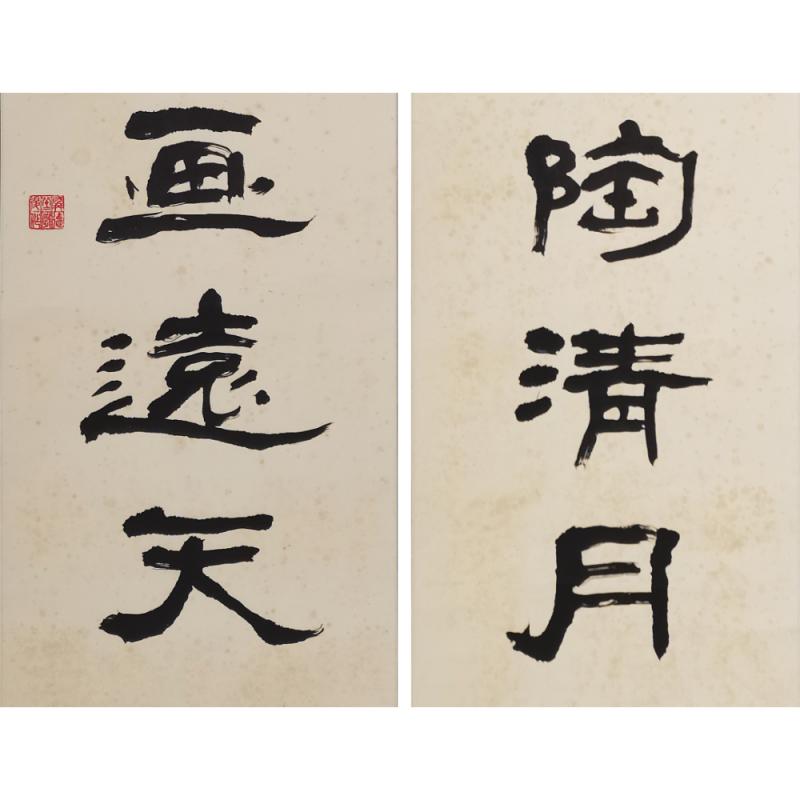 陶清月
画遠天